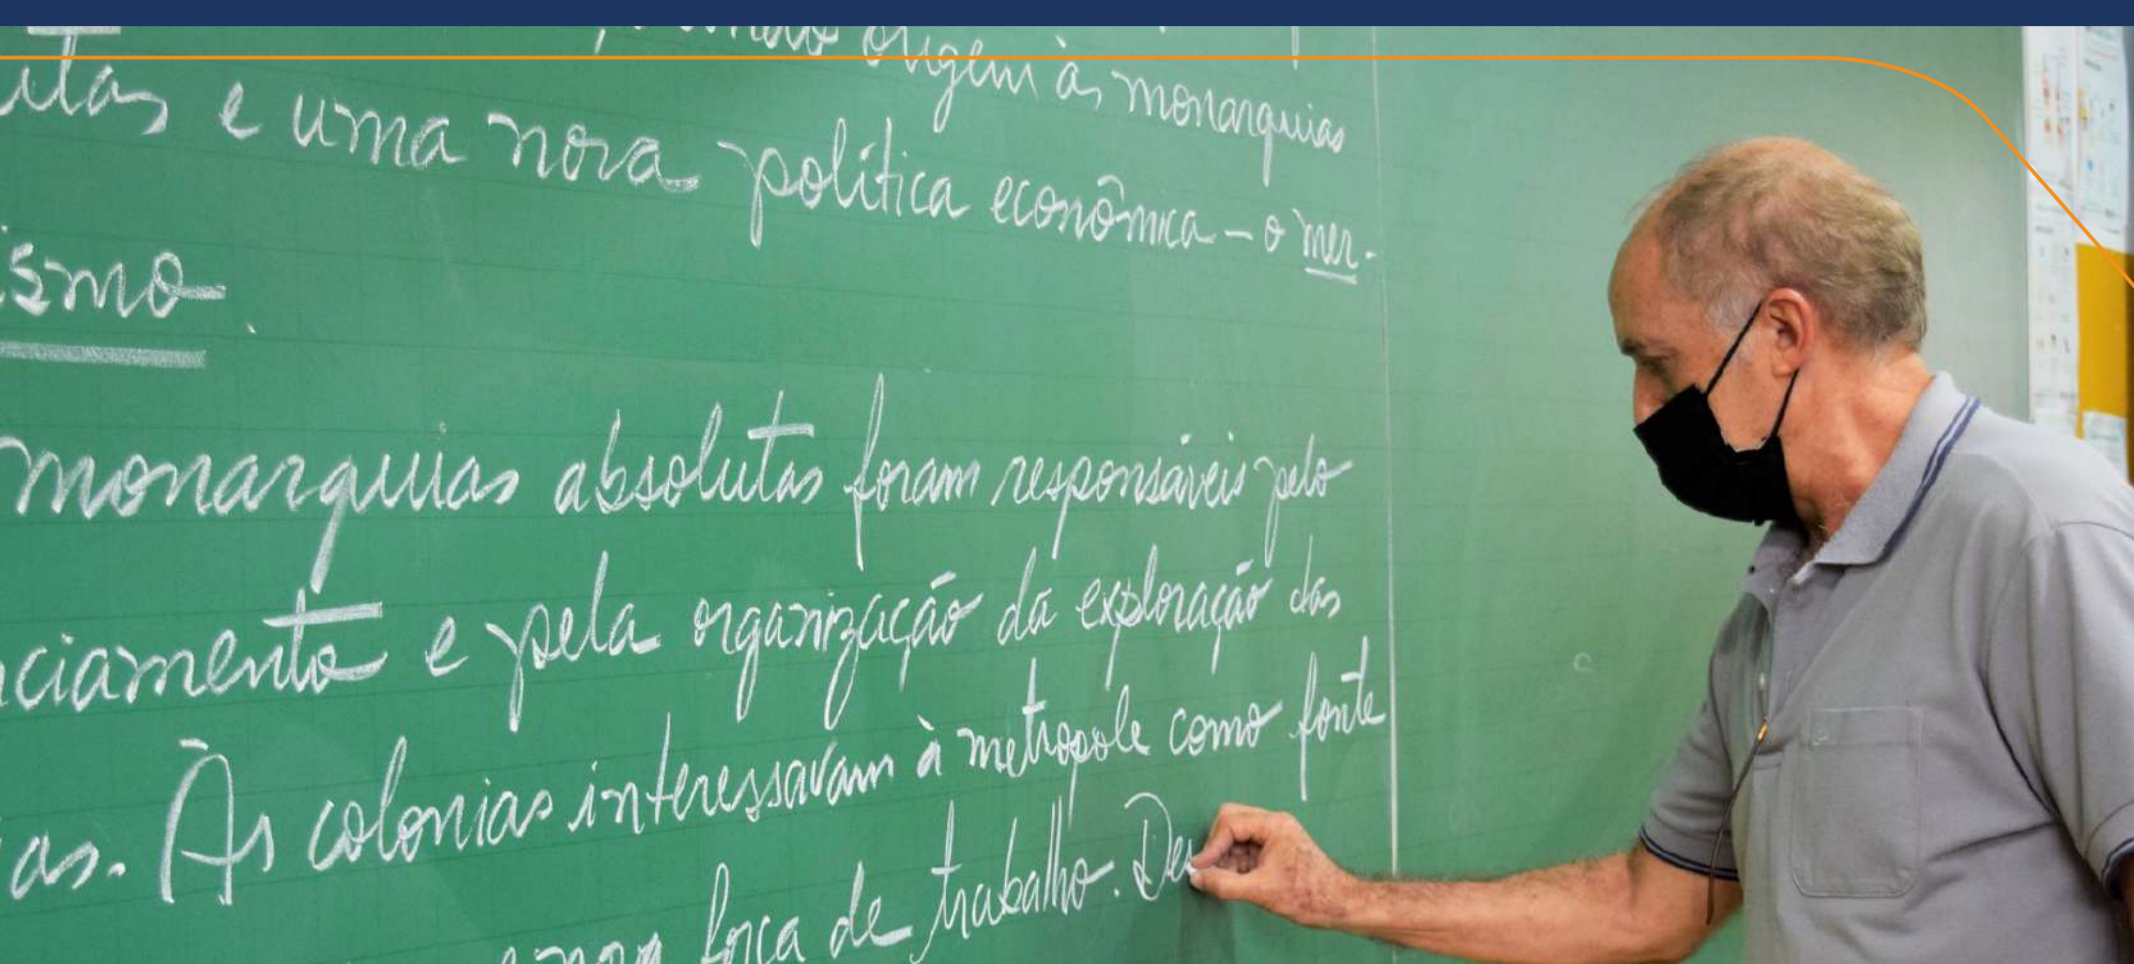 origem às monarquias
e uma nova política econômica – o mer-
ismo.
monarquias absolutas foram responsáveis pelo
ciamento e pela organização da exploração das
as. As colonias interessavam à metropole como fonte
força de trabalho. De